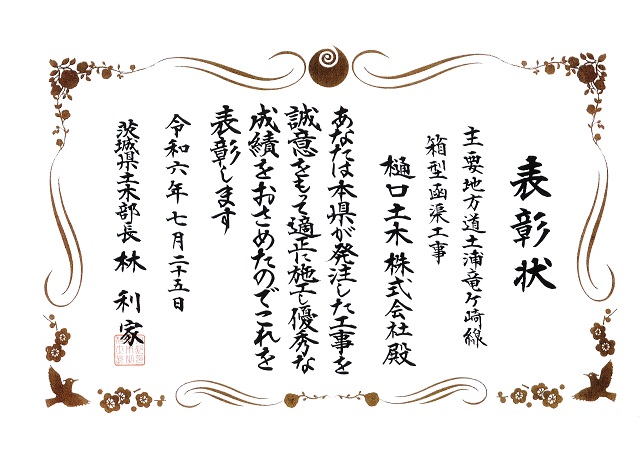 表彰状
主要地方道土浦竜ケ崎線
箱型函渠工事
樋口土木株式会社殿
あなたは本県が発注した工事を
誠意をもって適正に施工し優秀な
成績をおさめたのでこれを
表彰します
令和六年七月二十五日
茨城県土木部長 林 利家